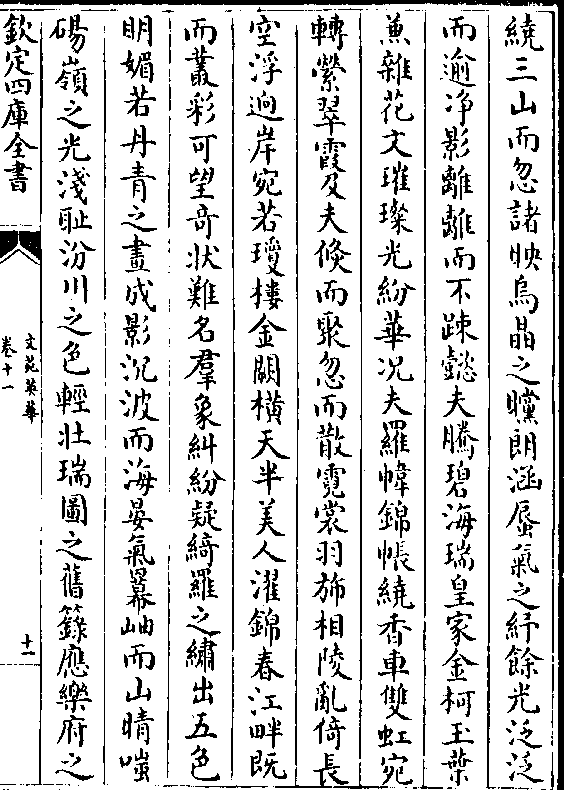 繞三山而忽諸映烏晶之曭朗涵蜃氣之紓餘光泛泛
而逾净影離離而不踈懿夫騰碧海瑞皇家金柯玉葉
蕙雜花文璀璨光紛華况夫羅幃錦帳繞香車雙虹宛
轉縈翠霞及夫倐而聚忽而散霓裳羽斾相陵亂倚長
空浮逈岸宛若瓊樓金闕横天半美人濯錦春江畔既
而叢彩可望竒狀難名羣象糾紛疑綺羅之繡出五色
明媚若丹青之畫成影沉波而海晏氣羃岫而山晴嗤
碭嶺之光淺恥汾川之色輕壮瑞圖之舊籙應樂府之
欽定四庫全書
文苑英華
卷十一
十一